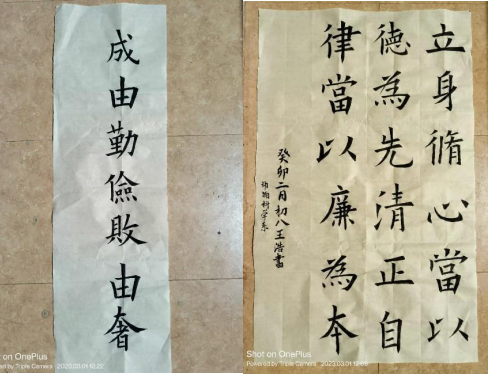 成由勤儉敗由奢
立身脩心當以
德為先清正自
律當以廉為本
癸卯二月初八王浩書
Shot on OnePlus
Powered by Triple Camera 2023.03.01 12:22
Shot on OnePlus
Powered by Triple Camera 2023.03.01